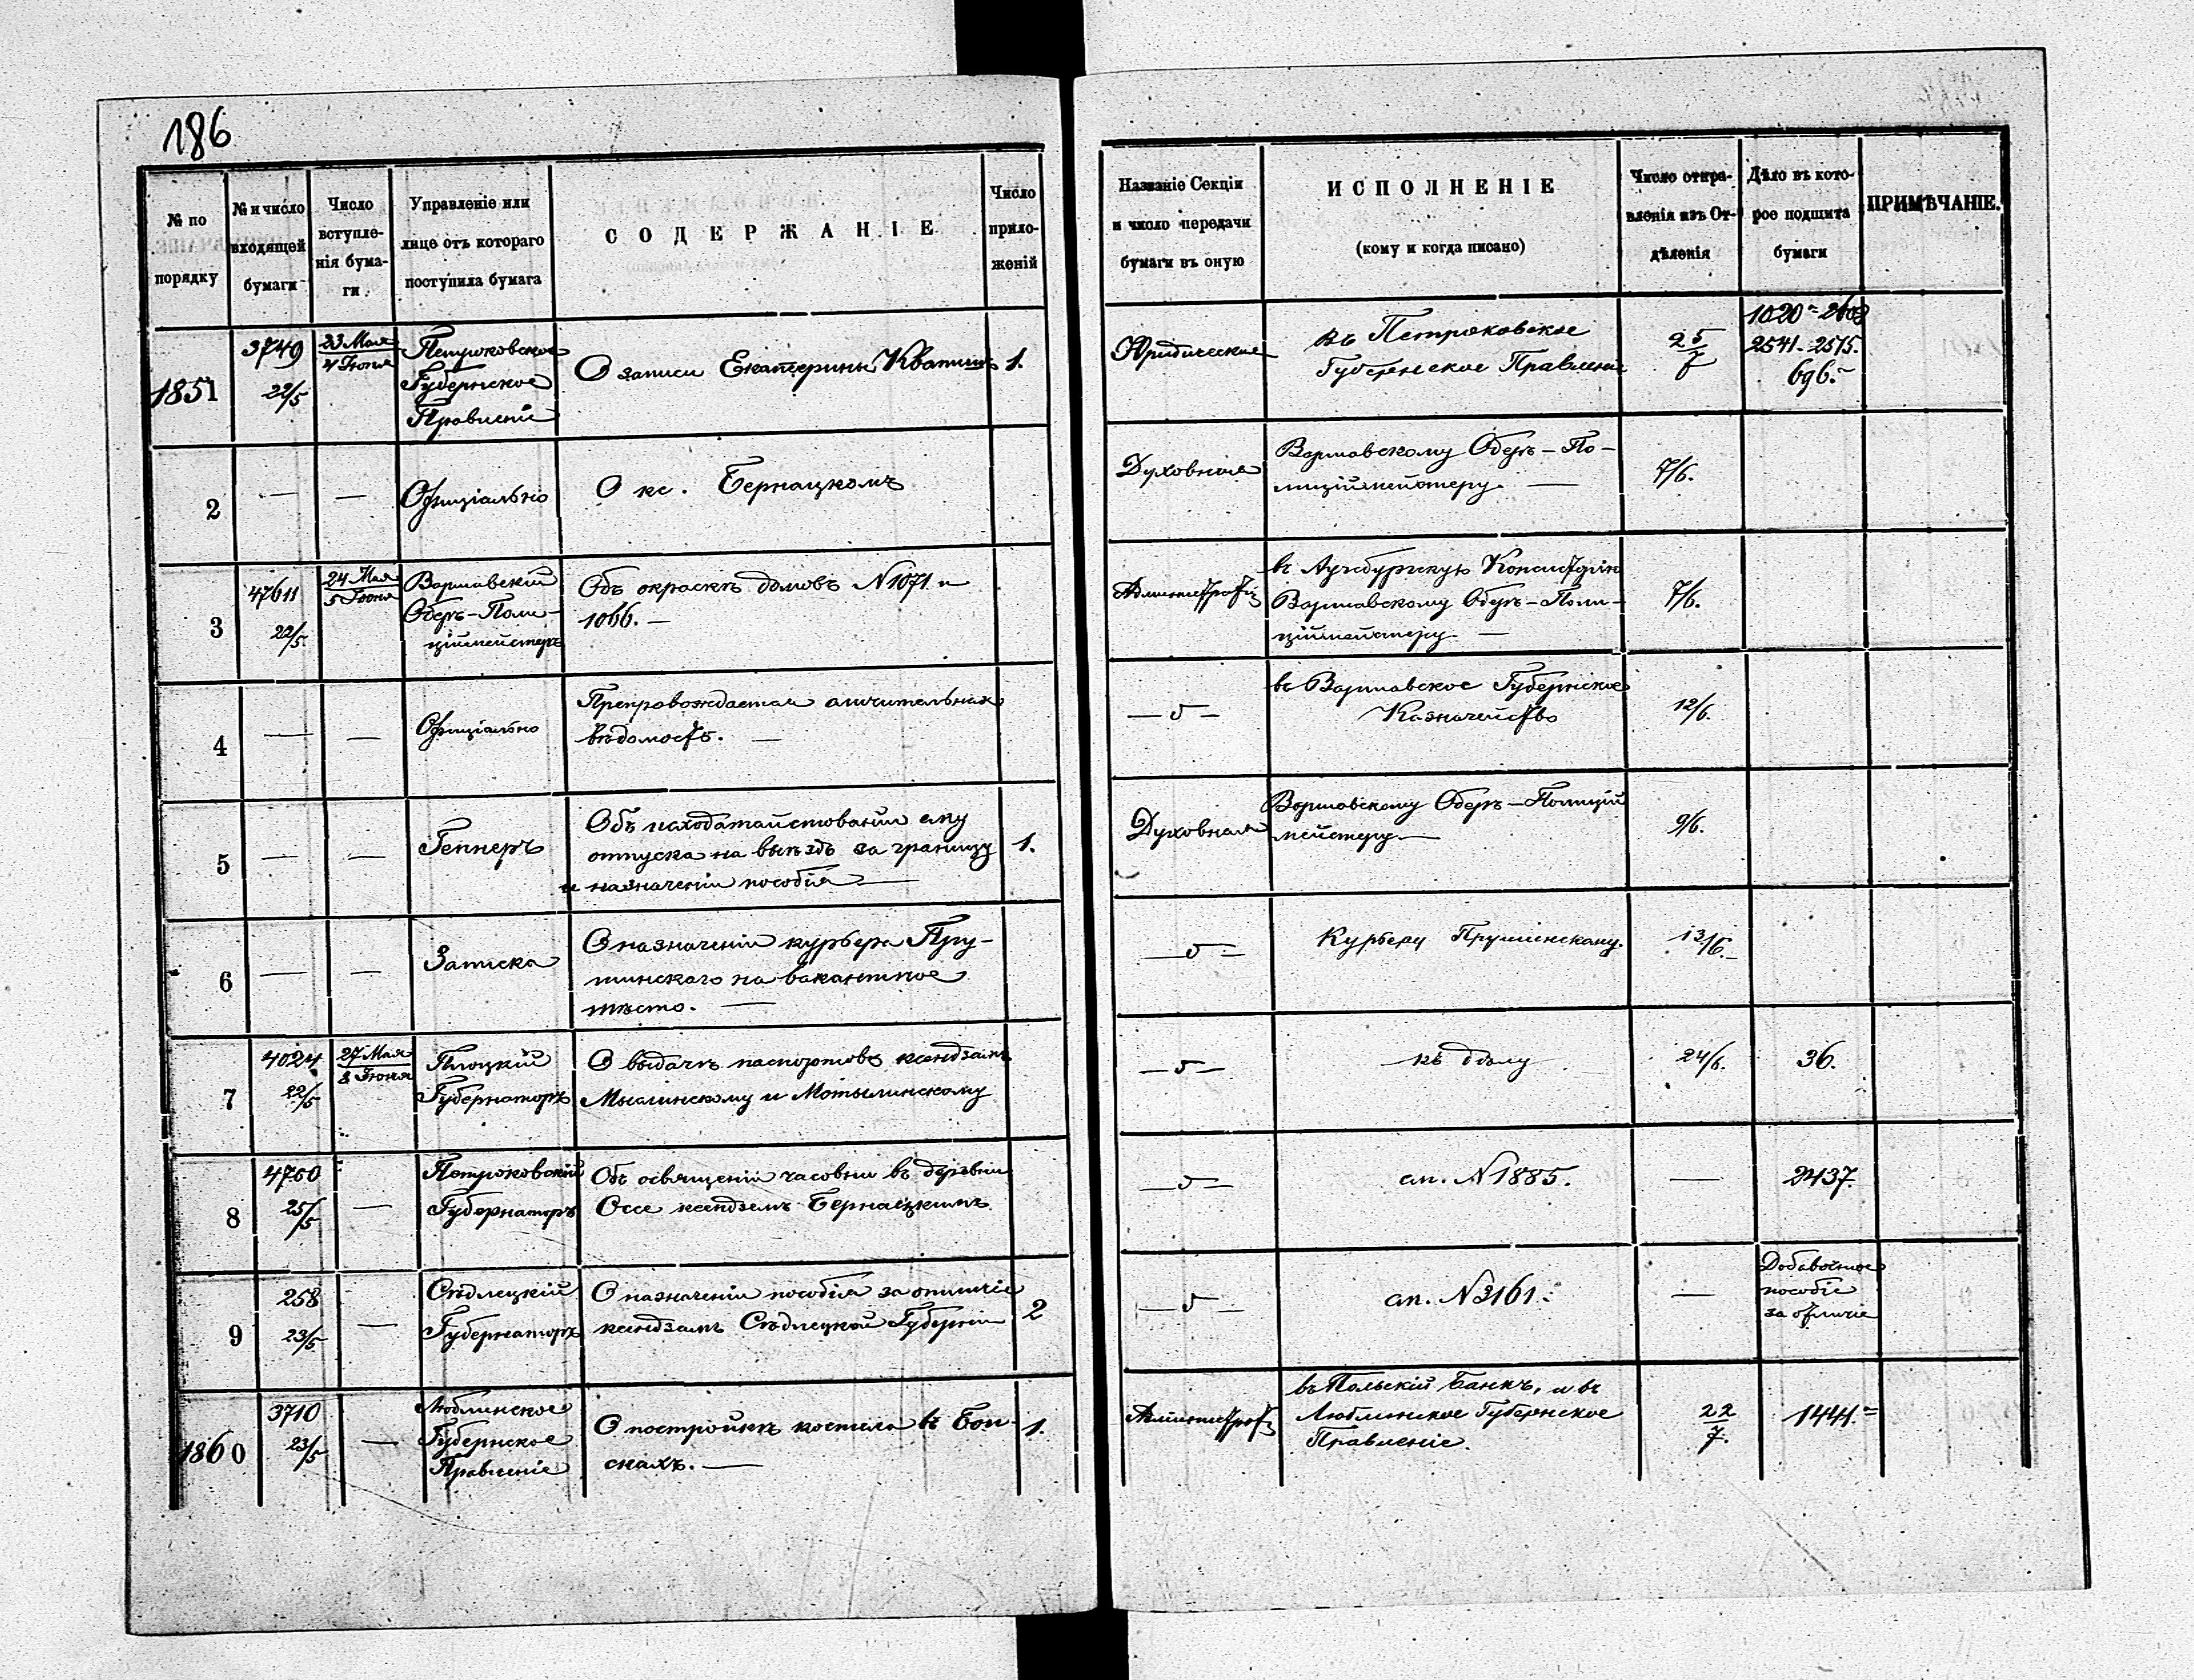 186
№ по порядку
№ и число входящей бумаги
Число вступле-нія бума-ги
Управленіе или лице отъ котораго поступила бумага
СОДЕРЖАНІЕ
Число прило-женій
Названіе Секціи и число передачи бумаги въ оную
ИСПОЛНЕНІЕ
(кому и когда писано)
Число отпра-вленія изъ От-дѣленія
Дѣло въ кото-рое подшита бумаги
ПРИМѢЧАНІЕ.
1851
3749
22/5
23 Мая
4 Іюня
Петроковское
Губернское
Правленіе
О записи Екатерины
1.
Юридическая
въ Петроковское
Губернское Правленіе
25
7
1020 =
2541. 2575.
696.-
2
—
—
Офиціально
О кс. Бернацкомъ
Духовная
Варшавскому Оберъ-По-
лиціймейстеру. —
7/6.
3
47611
22/5.
24 Мая
5 Іюня
Варшавскій
Оберъ-Поли-
ціймейстеръ
Объ окраскѣ домовъ N 1071 и
1066. —
въ Аугсбургскую Консисторію
Варшавскому Оберъ-Поли-
ціймейстеру. —
7/6.
4
—
—
Офиціально
Препровождается
вѣдомость. —
въ Варшавское Губернское
Казначейство
12/6.
5
—
—
Геннеръ
Объ исходатайствованіи ему
отпуска на выѣздъ за границу
и назначеніи пособія —
1.
Духовная
Варшавскому Оберъ-Полицій
мейстеру —
9/6.
6
—
—
Записка
О назначеніи курьера Пру-
шинскаго на вакантное
мѣсто. —
Курьеру Прушинскому.
13/6.-
7
4024
22/5
27 Мая
8 Іюня
Плоцкій
Губернаторъ
О выдачѣ паспортовъ ксендзамъ
Мыслинскому и Мотылинскому
къ дѣлу
24/6.
36.
8
4760
25/5
—
Петроковскій
Губернаторъ
Объ освященіи часовни въ деревни
Оссе ксендземъ Бернацкимъ.
сп. N 1885.
—
2437.
9
258
23/5
—
Сѣдлецкій
Губернаторъ
О назначеніи пособія за отличіе
ксендзамъ Сѣдлецкой Губерніи
2
сп. N 3161.
—
Добавочное
пособіе
за отличіе
1860
3710
23/5
—
Люблинское
Губернское
Правленіе
О постройкѣ костела въ
1.
въ Польскій Банкъ, и въ
Люблинское Губернское
Правленіе.
22
7.
1441.=